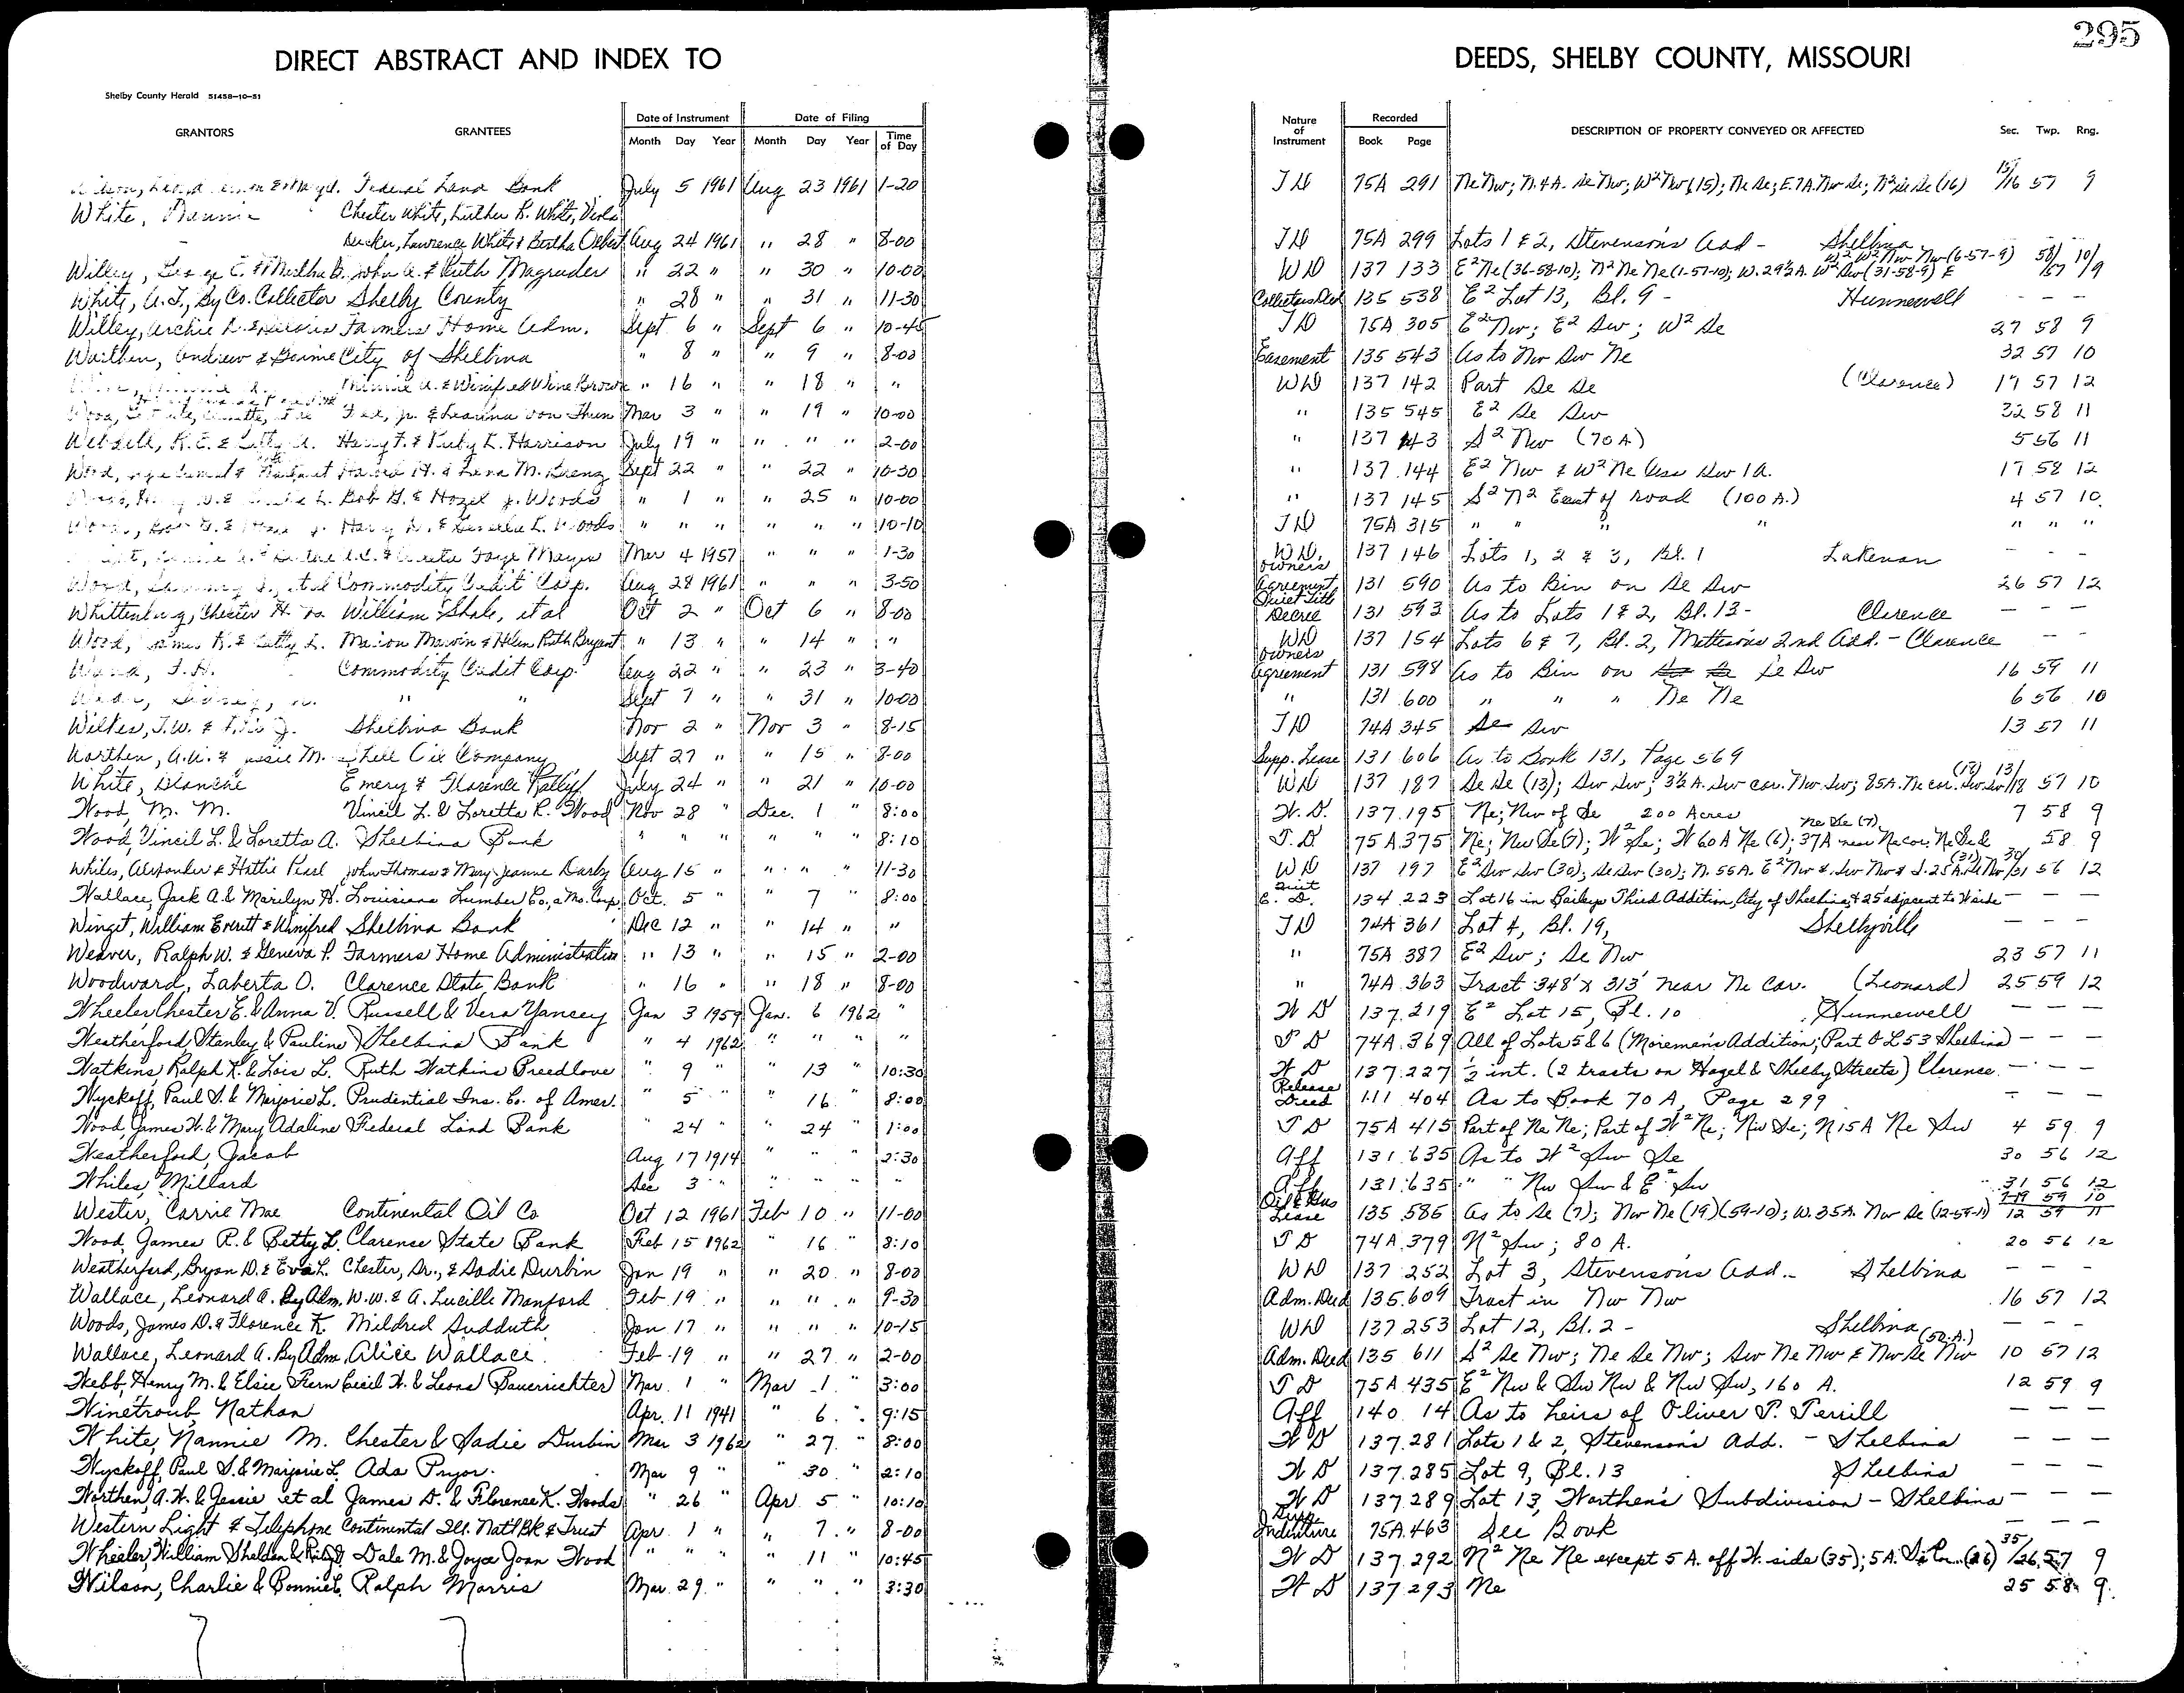 295
DIRECT ABSTRACT AND INDEX TO DEEDS, SHELBY COUNTY, MISSOURI
Shelby County Herald 51458-10-51
GRANTORS GRANTEES Date of Instrument Month Day Year Date of Filing Month Day Year Time of Day Nature of Instrument Recorded Book Page DESCRIPTION OF PROPERTY CONVEYED OR AFFECTED Sec. Twp. Rng.
Federal Land Bank July 5 1961 Aug 23 1961 1-20 TD 75A 291 Ne Nw; N.4A. Se Nw; W² Nw (15); Ne Se; E.7A. Nw Se; N² Se Se (16) 15/16 57 9
White, Chester White, Luther R. White, Viola
Decker, Lawrence White & Bertha Aug 24 1961 " 28 " 8-00 TD 75A 299 Lots 1 & 2, Stevenson's Add - Shelbina
Willey, George E. & Martha B. John A. & Ruth Magruder " 22 " " 30 " 10-00 WD 137 133 E² Ne (36-58-10); N² Ne Ne (1-57-10); W. 29½ A. W² Sw (31-58-9) & W² W² Nw Nw (6-57-9) 58/57 10/9
White, A.T., By Co. Collector Shelby County " 28 " " 31 " 11-30 Collectors Deed 135 538 E² Lot 13, Bl. 9 - Hunnewell - - -
Willey, Archie Farmers Home Adm. Sept 6 " Sept 6 " 10-45 TD 75A 305 E² Nw; E² Sw; W² Se 27 58 9
Worthen, Andrew & City of Shelbina " 8 " " 9 " 8-00 Easement 135 543 As to Nw Sw Ne 32 57 10
Minnie A. & Winifred Wine Brown " 16 " " 18 " " WD 137 142 Part Se Se (Clarence) 17 57 12
Jr. & Leanna von Thun Mar 3 " " 19 " 10-00 " 135 545 E² Se Sw 32 58 11
R.E. & Harry F. & Ruby L. Harrison July 19 " " " " 2-00 " 137 143 S² Nw (70A) 5 56 11
Wood, & Margaret Harold H. & Lena M. Sept 22 " " 22 " 10-30 " 137 144 E² Nw & W² Ne less Sw 1A. 17 58 12
Bob G. & Hazel J. Woods " 1 " " 25 " 10-00 " 137 145 S² N² East of road (100 A.) 4 57 10
Woods, Bob G. & Harry & L. Woods " " " " " " 10-10 TD 75A 315 " " " " " " "
Faye Mayes Mar 4 1957 " " " 1-30 WD. 137 146 Lots 1, 2 & 3, Bl. 1 Lakenan - - -
Wood, et al Commodity Credit Corp. Aug 28 1961 " " " 3-50 Owners Agreement 131 590 As to Bin on Se Sw 26 57 12
Whittenburg, Chester H. vs. William Shale, et al Oct 2 " Oct 6 " 8-00 Quiet Title Decree 131 593 As to Lots 1 & 2, Bl. 13 - Clarence - - -
Wood, James R. & Betty L. Marion Marvin & Helen Ruth Bryant " 13 " " 14 " " WD 137 154 Lots 6 & 7, Bl. 2, 2nd Add. - Clarence - -
Commodity Credit Corp. Aug 22 " " 23 " 3-40 Owners Agreement 131 598 As to Bin on Se Sw 16 59 11
" " Sept 7 " " 31 " 10-00 " 131 600 " " " Ne Ne 6 56 10
Wilkes, T.W. & Shelbina Bank Nov 2 " Nov 3 " 8-15 TD 74A 345 Se Sw 13 57 11
Worthen, A.W. & Jessie M. Shell Oil Company Sept 27 " " 15 " 8-00 Supp. Lease 131 606 As to Book 131, Page 569
White, Blanche Emery & Florence July 24 " " 21 " 10-00 WD 137 187 Se Se (13); Sw Sw; 3½ A. Sw cor. Nw Sw; 85A. Ne cor. Sw Sw (18) 13/18 57 10
Wood, M. M. Vincil L. & Loretta R. Wood Nov 28 " Dec. 1 " 8:00 W. D. 137 195 Ne; Nw of Se 200 Acres 7 58 9
Wood, Vincil L. & Loretta A. Shelbina Bank " " " " " " 8:10 T. D. 75A 375 Ne; Nw Se (7); W² Se; W 60 A Ne (6); 37A near Ne cor. Ne Se & Ne Se (7) 58 9
Whiles, Alexander & Hattie Pearl John Thomas & Mary Jeanne Darby Aug 15 " " " " 11-30 WD 137 197 E² Sw Sw (30); Se Sw (30); N. 55A. E² Nw & Sw Nw & S. 25A. Se Nw (31) 30/31 56 12
Wallace, Jack A. & Marilyn H. Louisiana Lumber Co., a Mo. Corp. Oct. 5 " " 7 " 8:00 Quit C. D. 134 223 Lot 16 in Baileys Third Addition, City of Shelbina, & 25' adjacent to W side - - -
Winget, William Everett & Winifred Shelbina Bank Dec 12 " " 14 " " TD 74A 361 Lot 4, Bl. 19, Shelbyville - - -
Weaver, Ralph W. & Geneva P. Farmers Home Administration " 13 " " 15 " 2-00 " 75A 387 E² Sw; Se Nw 23 57 11
Woodward, Laberta O. Clarence State Bank " 16 " " 18 " 8-00 " 74A 363 Tract 348' x 313' near Ne Cor. (Leonard) 25 59 12
Wheeler, Chester E. & Anna V. Russell & Vera Yancey Jan 3 1959 Jan. 6 1962 " W D 137 219 E² Lot 15, Bl. 10 Hunnewell - - -
Weatherford, Stanley & Pauline Shelbina Bank " 4 1962 " " " " T D 74A 369 All of Lots 5 & 6 (Moremen's Addition; Part O L 53 Shelbina) - - -
Watkins, Ralph K. & Lois L. Ruth Watkins Breedlove " 9 " " 13 " 10:30 W D 137 227 ½ int. (2 tracts on Hagel & Shelby Streets) Clarence - - -
Wyckoff, Paul S. & Marjorie L. Prudential Ins. Co. of Amer. " 5 " " 16 " 8:00 Release Deed 111 404 As to Book 70 A, Page 299 - - -
Wood, James W. & Mary Adaline Federal Land Bank " 24 " " 24 " 1:00 T D 75A 415 Part of Ne Ne; Part of W² Ne; Nw Se; N 15 A Ne Sw 4 59 9
Weatherford, Jacob Aug 17 1914 " " " 2:30 Aff 131 635 As to W² Sw Se 30 56 12
Whiles, Millard Dec 3 " " " " " Aff 131 635 " " Nw Sw & E² Sw 31 56 12
Wester, Carrie Mae Continental Oil Co Oct 12 1961 Feb 10 " 11-00 Oil & Gas Lease 135 585 As to Se (7); Nw Ne (19) (59-10); W. 35A. Nw Se (12-59-11) 7-19 59 10 12 59 11
Wood, James R. & Betty L. Clarence State Bank Feb 15 1962 " 16 " 8:10 T D 74A 379 N² Sw; 80 A. 20 56 12
Weatherford, Bryon D. & Eva L. Chester, Sr., & Sadie Durbin Jan 19 " " 20 " 8-00 WD 137 252 Lot 3, Stevenson's Add. - Shelbina - - -
Wallace, Leonard A. By Adm. W.W. & A. Lucille Manford Feb 19 " " " " 9-30 Adm. Deed 135 609 Tract in Nw Nw 16 57 12
Woods, James D. & Florence K. Mildred Sudduth Jan 17 " " " " 10-15 WD 137 253 Lot 12, Bl. 2 - Shelbina - - -
Wallace, Leonard A. By Adm. Alice Wallace Feb 19 " " 27 " 2-00 Adm. Deed 135 611 S² Se Nw; Ne Se Nw; Sw Ne Nw & Nw Se Nw (50 A.) 10 57 12
Webb, Henry M. & Elsie Fern Cecil W. & Leona Bauerichter Mar. 1 " Mar 1 " 3:00 T D 75A 435 E² Nw & Sw Nw & Nw Sw, 160 A. 12 59 9
Winetroub, Nathan Apr. 11 1941 " 6 " 9:15 Aff 140 14 As to heirs of Oliver P. Terrill - - -
White, Nannie M. Chester & Sadie Durbin Mar 3 1962 " 27 " 8:00 W D 137 281 Lots 1 & 2, Stevenson's Add. - Shelbina - - -
Wyckoff, Paul S. & Marjorie L. Ada Pryor Mar 9 " " 30 " 2:10 W D 137 285 Lot 9, Bl. 13 Shelbina - - -
Worthen, A. W. & Jessie et al James D. & Florence K. Woods " 26 " Apr 5 " 10:10 W D 137 289 Lot 13, Worthen's Subdivision - Shelbina - - -
Western Light & Telephone Continental Ill. Nat'l Bk & Trust Apr. 1 " " 7 " 8-00 Supp. Indenture 75A 463 See Book - - -
Wheeler, William Sheldon & Dale M. & Joyce Joan Wood " " " " 11 " 10:45 W D 137 292 N² Ne Ne except 5 A. off W. side (35); 5A. (26) 35/26 57 9
Wilson, Charlie & Bonnie L. Ralph Morris Mar. 29 " " " " 3:30 W D 137 293 Ne 25 58 9